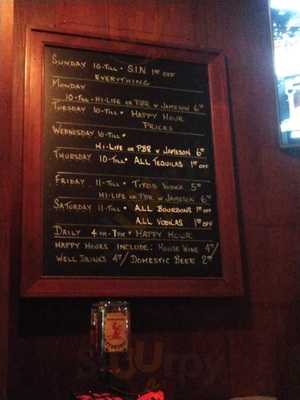 SUNDAY 10-TILL • S.I.N 1$ OFF
EVERYTHING
MONDAY
10-TILL • HI-LIFE OR PBR & JAMESON 6
TUESDAY 10-TILL • HAPPY HOUR
PRICES
WEDNESDAY 10-TILL •
HI-LIFE OR PBR & JAMESON 6
THURSDAY 10-TILL • ALL TEQUILAS 1$ OFF
FRIDAY 11-TILL • TITOS VODKA 5
HI-LIFE OR PBR & JAMESON 6
SATURDAY 11-TILL • ALL BOURBONS 1$ OFF
ALL VODKAS 1$ OFF
DAILY 4PM-7PM • HAPPY HOUR
HAPPY HOURS INCLUDE: HOUSE WINE 4/
WELL DRINKS 4/ DOMESTIC BEER 2
Sirurpy